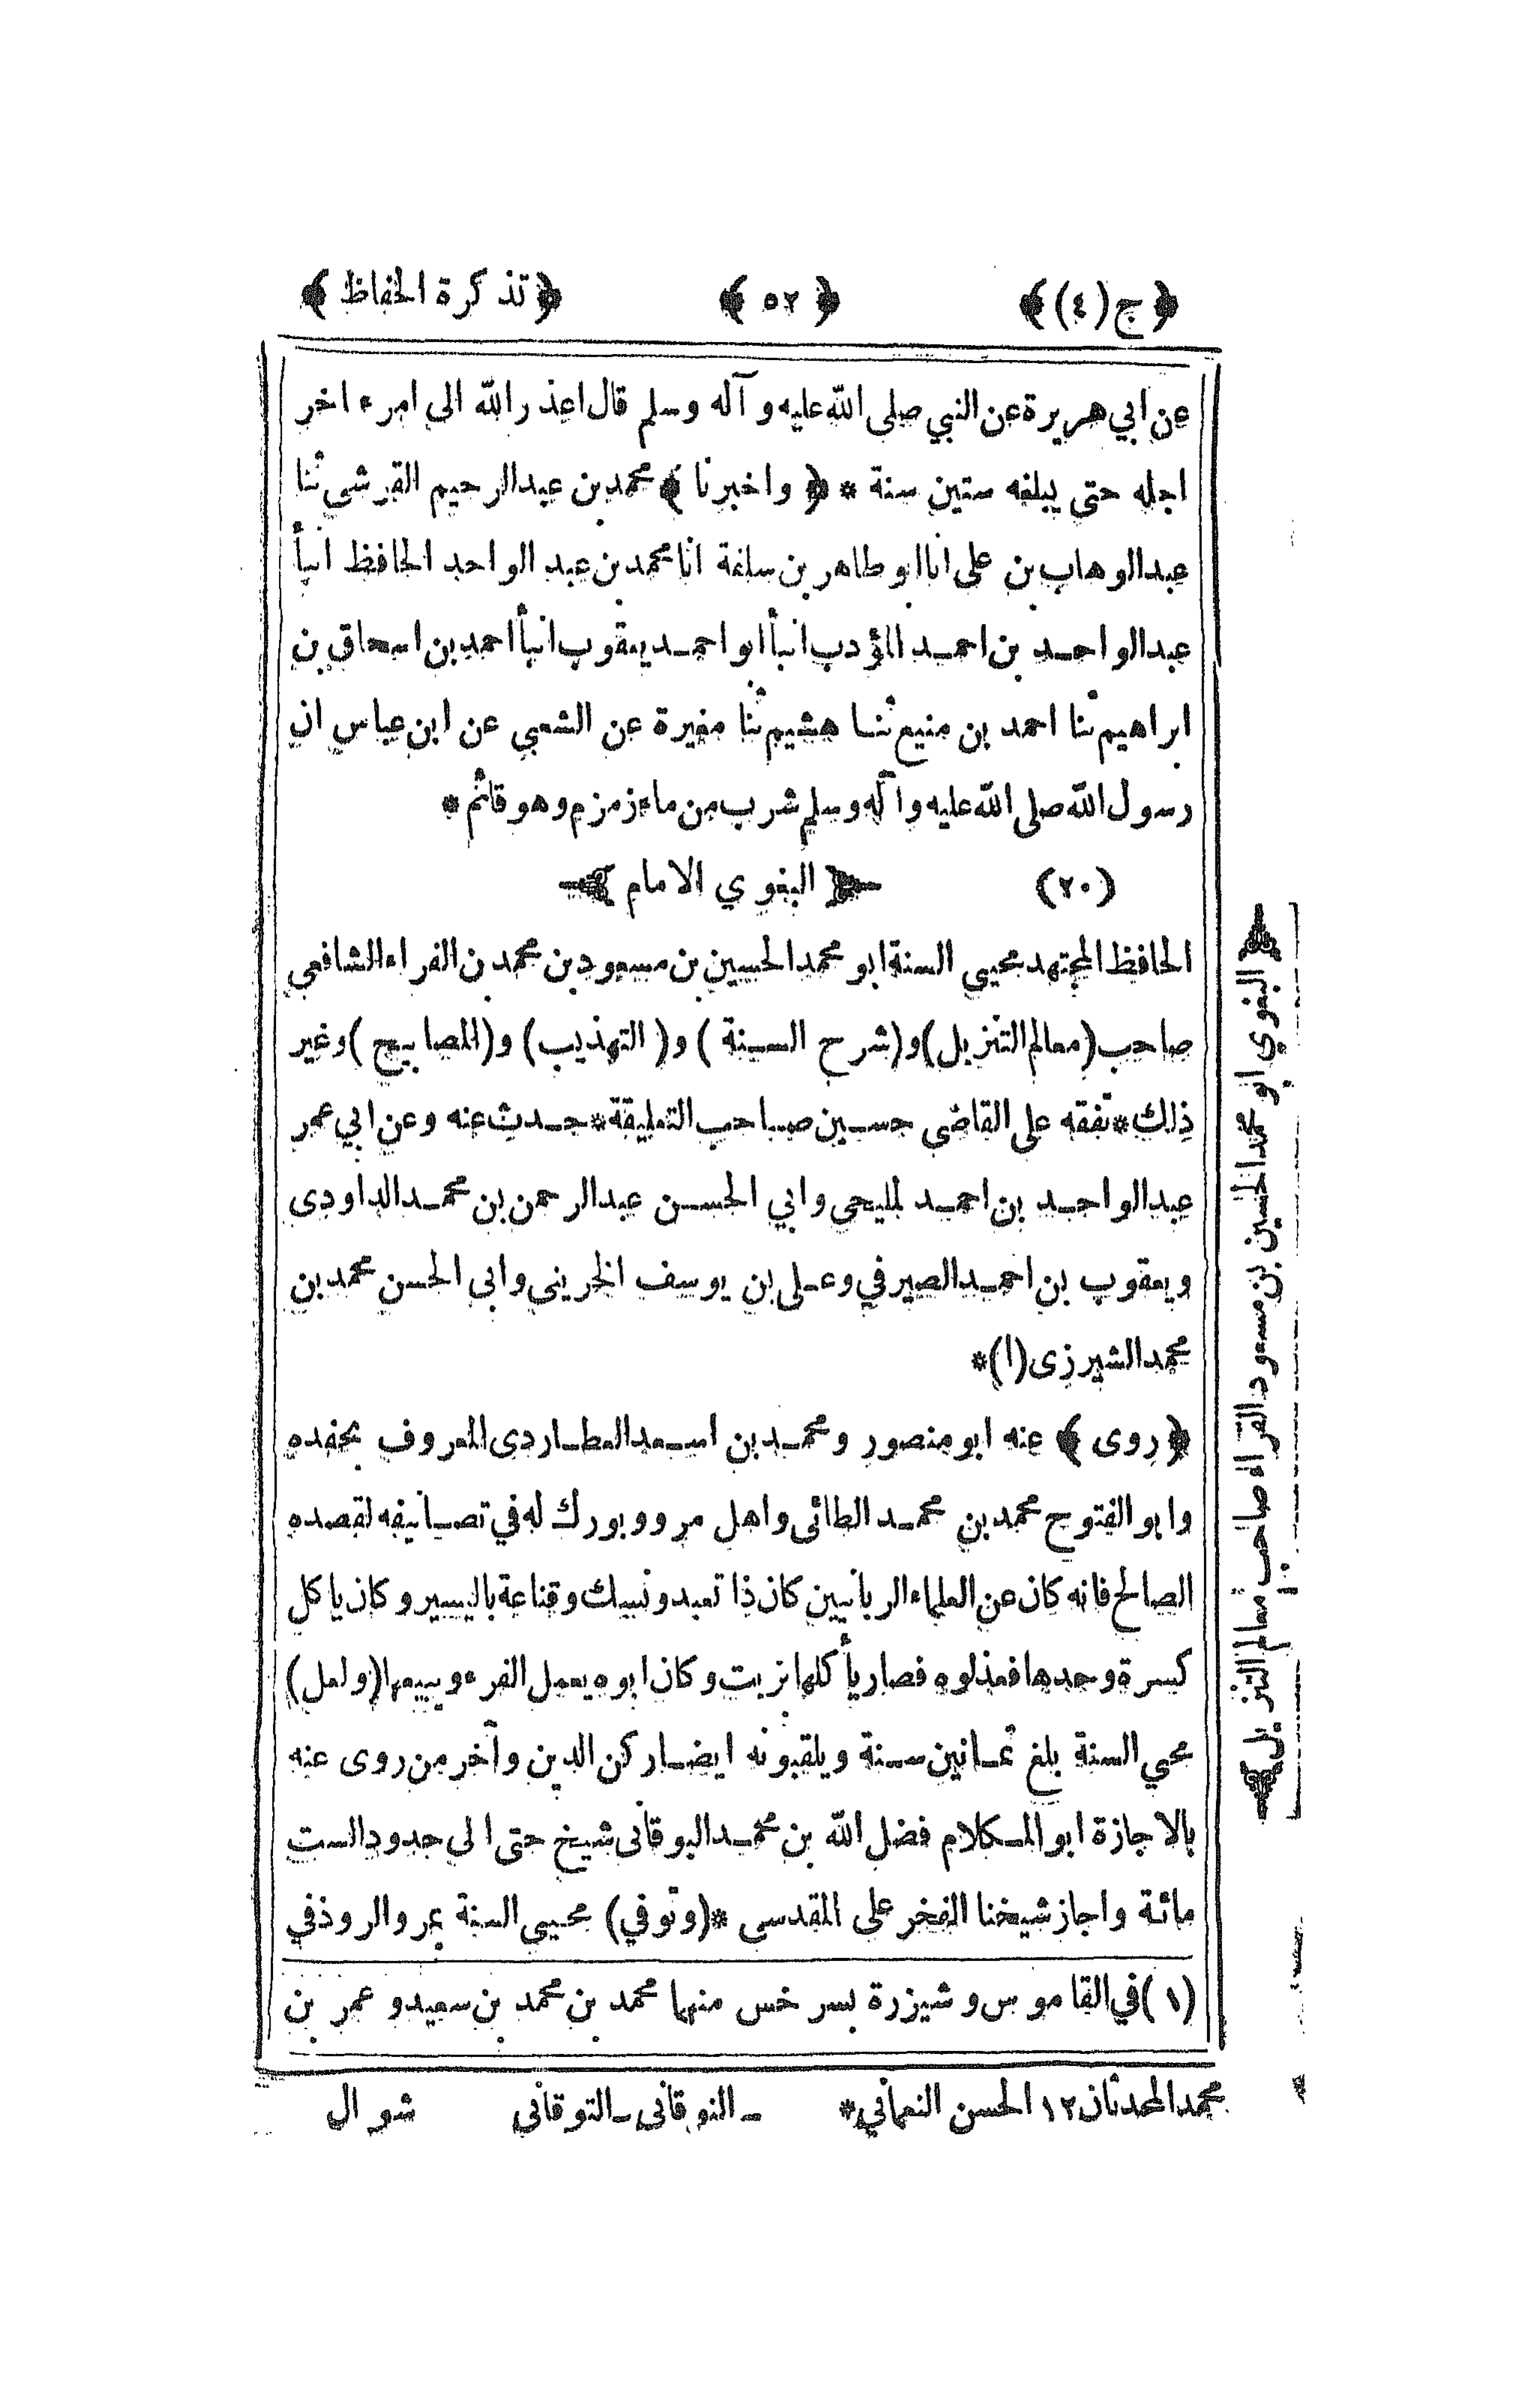 ﴿ ج (٤) ﴾ ﴿ ٥٢ ﴾ ﴿ تذكرة الحفاظ ﴾
عن ابي هريرة عن النبي صلى الله عليه وآله وسلم قال اعذر الله الى امرء اخر
اجله حتى يبلغه ستين سنة * ﴿ واخبرنا ﴾ محمد بن عبدالرحيم القرشي ثنا
عبدالوهاب بن على انا ابو طاهر بن سلفة انا محمد بن عبد الواحد الحافظ انبأ
عبدالواحد بن احمد المؤدب انبأ ابو احمد يعقوب انبأ احمد بن اسحاق بن
ابراهيم ثنا احمد بن منيع ثنا هشيم ثنا مغيرة عن الشعبي عن ابن عباس ان
رسول الله صلى الله عليه وآله وسلم شرب من ماء زمزم وهو قائم *
(٢٠) البغوي الامام
الحافظ المجتهد محيى السنة ابو محمد الحسين بن مسعود بن محمد بن الفراء الشافعي
صاحب (معالم التنزيل) و(شرح السنة) و(التهذيب) و(المصابيح) وغير
ذلك * تفقه على القاضى حسين صاحب التعليقة * حدث عنه وعن ابي عمر
عبدالواحد بن احمد لمليحى وابي الحسن عبدالرحمن بن محمد الداودى
ويعقوب بن احمد الصيرفي وعلى بن يوسف الخرينى وابى الحسن محمد بن
محمد الشيرزى (١) *
﴿ روى ﴾ عنه ابو منصور ومحمد بن اسعد العطاردى المعروف بحفده
وابو الفتوح محمد بن محمد الطائى واهل مرو وبورك له في تصانيفه لقصده
الصالح فانه كان عن العلماء الربانيين كان ذا تعبد ونسك وقناعة باليسير وكان ياكل
كسرة وحدها فعذلوه فصار يأكلها بزيت وكان ابوه يعمل الفرء ويبيعها (ولعل)
محيي السنة بلغ ثمانين سنة ويلقبونه ايضا ركن الدين وآخر من روى عنه
بالاجازة ابو المكلام فضل الله بن محمد البوقانى شيخ حتى الى حدود الست
مائة واجاز شيخنا الفخر على المقدسى * (وتوفي) محيى السنة بمرو الروذ في
(١) في القاموس وشيزرة بسرخس منها محمد بن محمد بن سعيد وعمر بن
محمد المحدثان ١٢ الحسن النعماني * ـ النوقانى ـ التوقانى شوال
البغوي ابو محمد الحسين بن مسعود الفراء صاحب معالم التنزيل